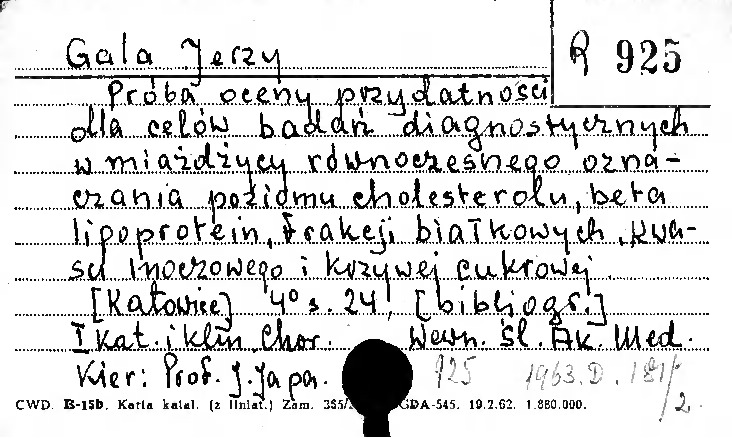 Gala Jerzy
R 925
Próba oceny przydatności
dla celów badań diagnostycznych
w miażdżycy równoczesnego ozna-
czania poziomu cholesterolu, beta
lipoprotein, frakcji białkowych, kwa-
su moczowego i krzywej cukrowej.
[Katowice] 4° s. 24, [bibliogr.]
I Kat. i Klin. Chor. Wewn. Śl. Ak. Med.
Kier: Prof. J. Japa.
925 1963.D.181/2.
CWD. B-15b. Karta katal. (z liniat.) Zam. GDA-545. 19.2.62. 1.880.000.